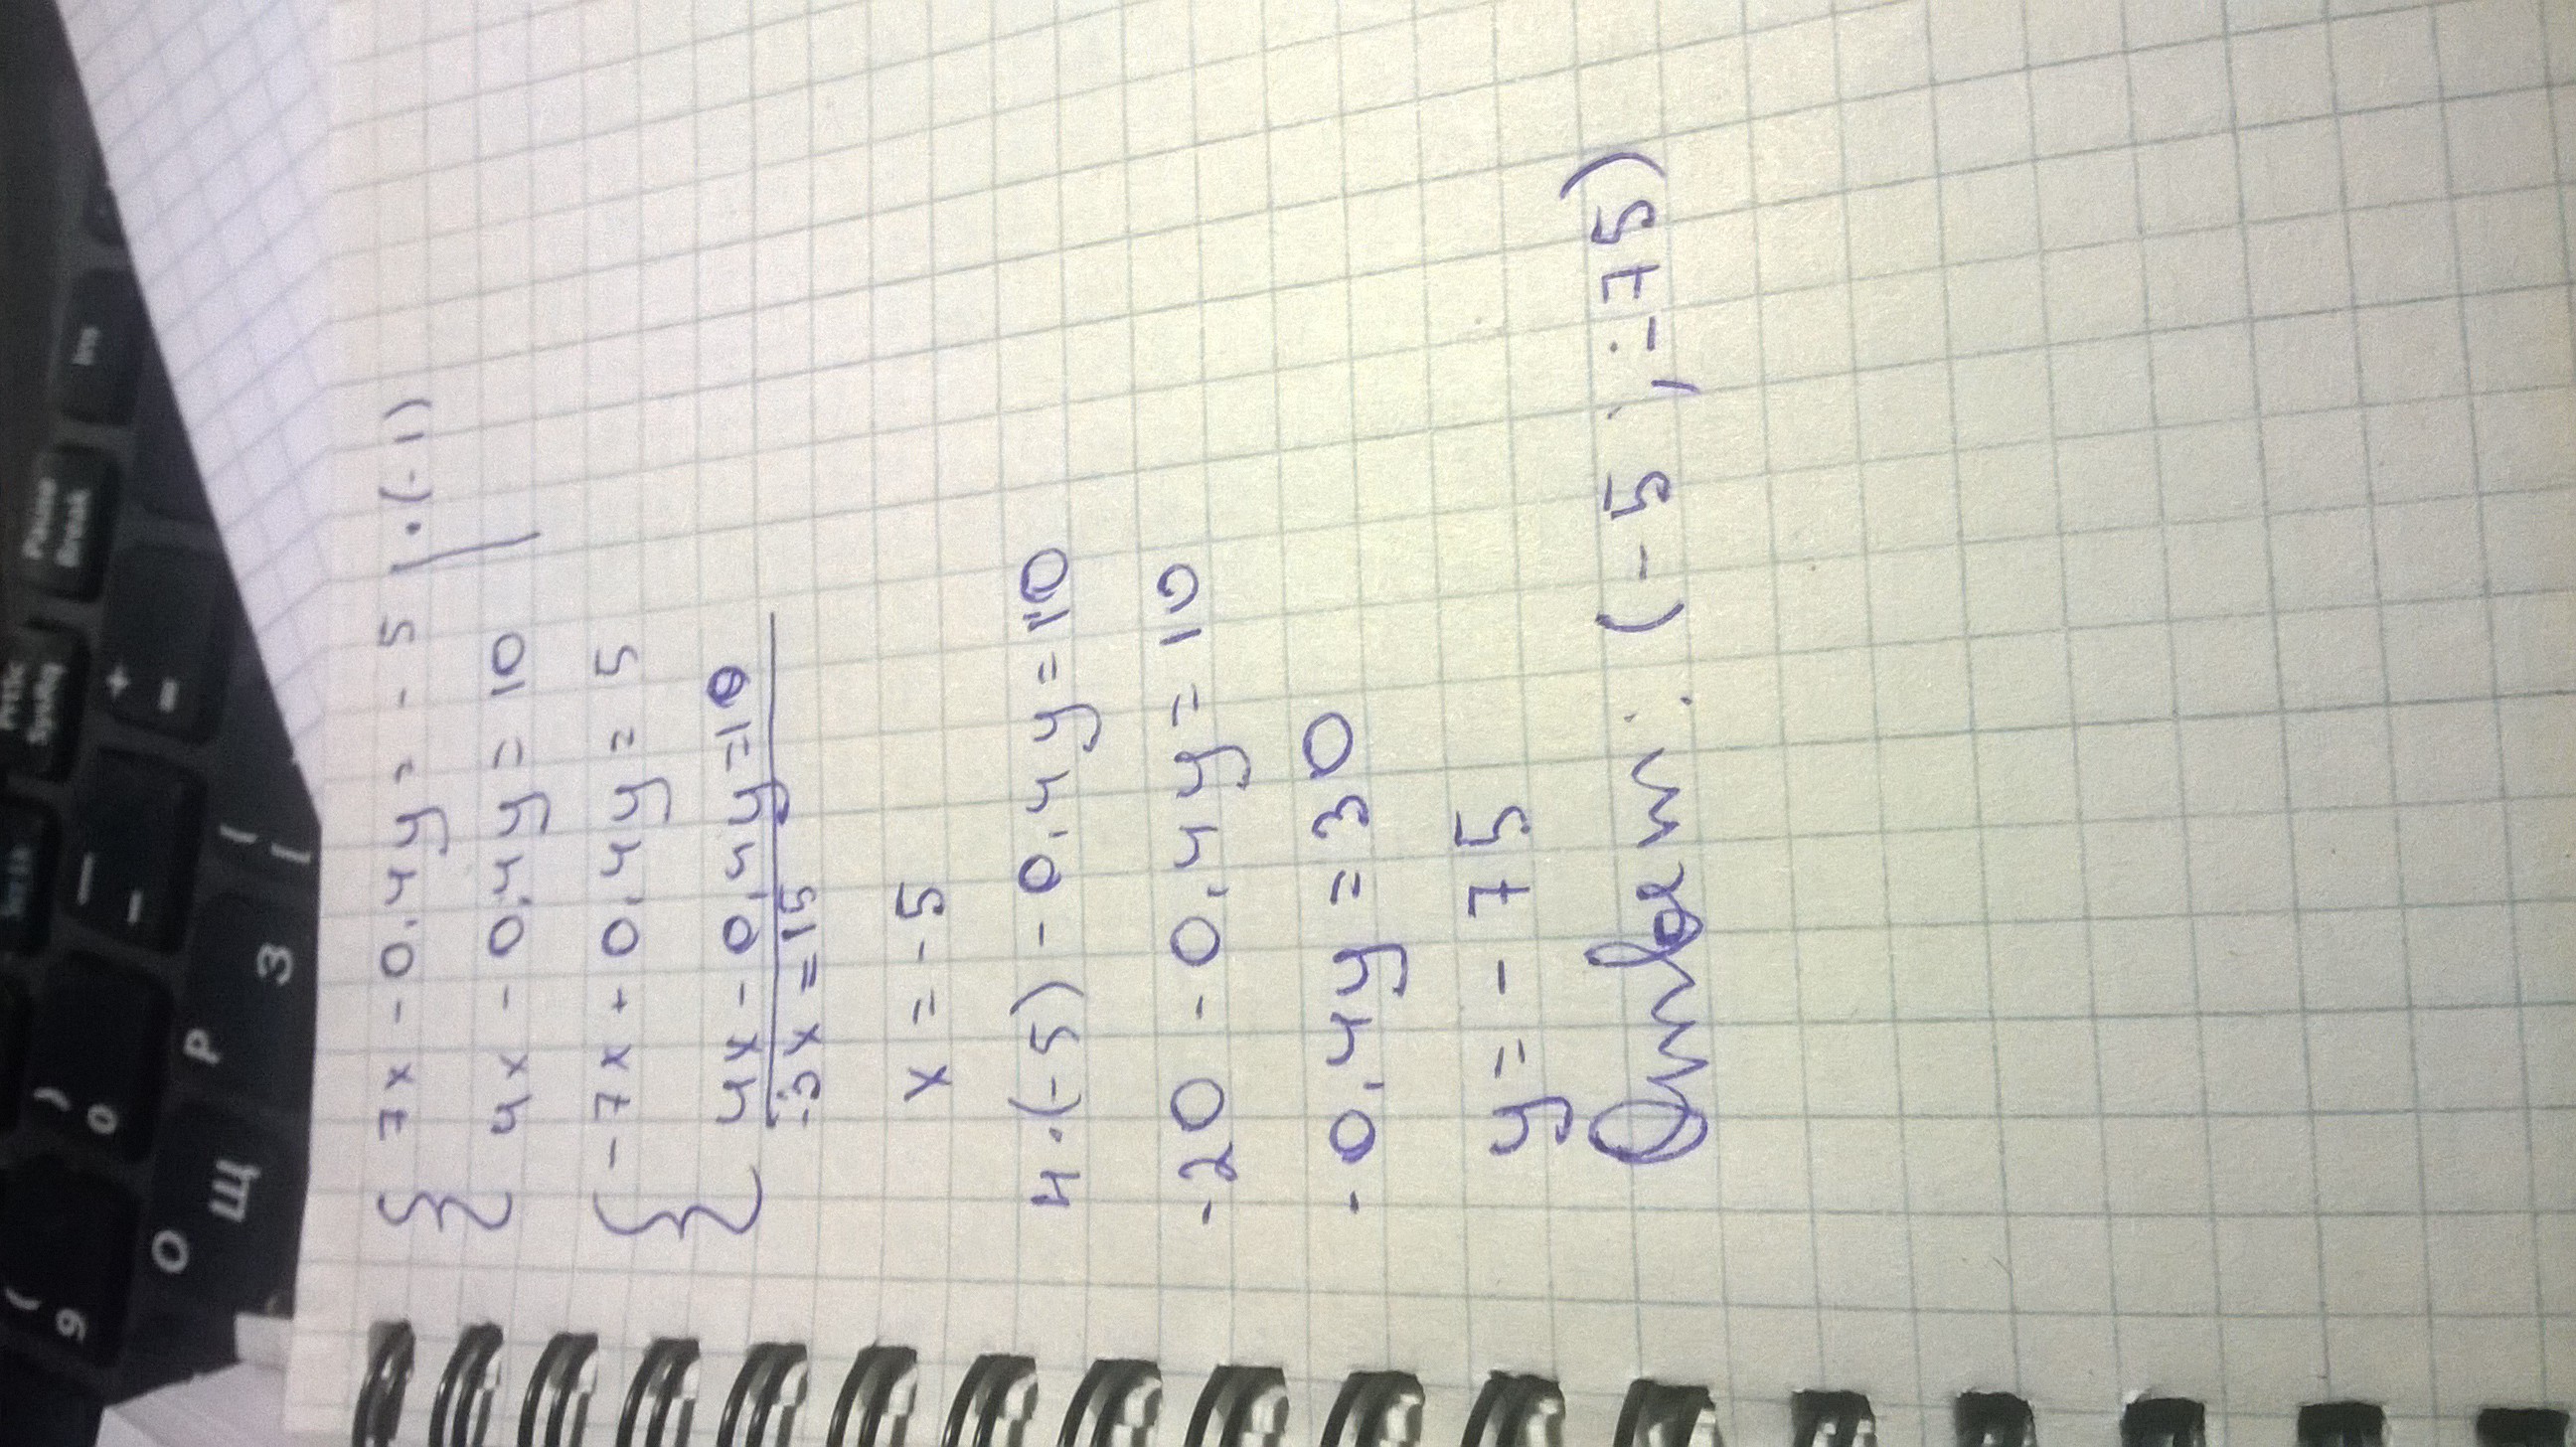 7x - 0,4y = - 5 | · (-1)
4x - 0,4y = 10
-7x + 0,4y = 5
4x - 0,4y = 10
-3x = 15
x = - 5
4 · (-5) - 0,4y = 10
-20 - 0,4y = 10
- 0,4y = 30
y = - 75
Ответ: (-5 ; -75)
Prt Sc
SysRq
Pause
Break
Ins
(
9
)
0
_
-
+
=
О
Щ
P
З
{
[